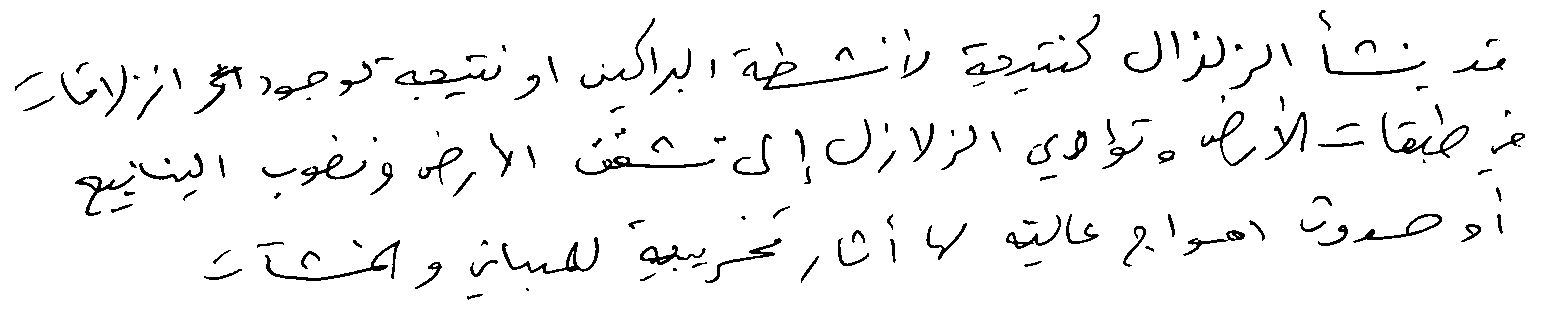 قد ينشأ الزلزال كنتيجة لأنشطة البراكين او نتيجة لوجود انزلاقات
في طبقات الأرض وتؤدي الزلازل إلى تشقق الأرض ونضوب الينابيع
أو حدوث امواج عالية لها أثار تخريبية للمباني والمنشآت